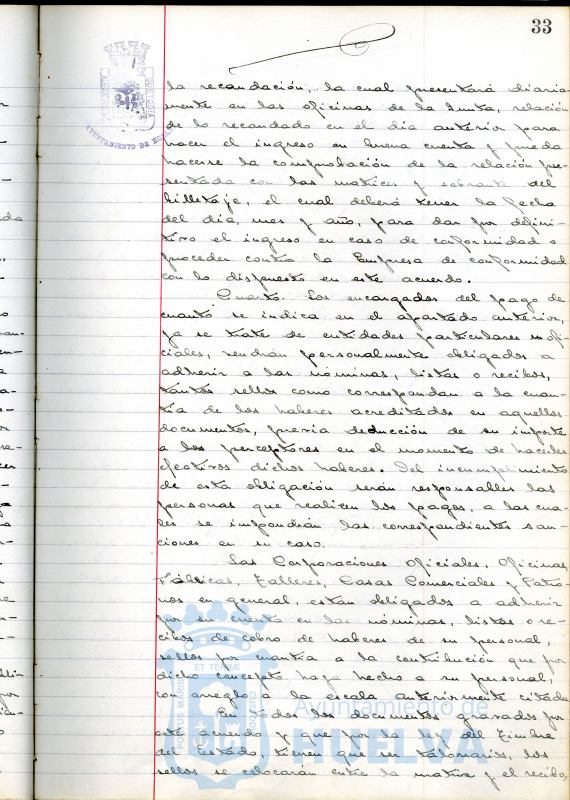 33
la recaudación, la cual presentará diaria-
mente en las oficinas de la Junta, relación
de lo recaudado en el dia anterior para
hacer el ingreso en buena cuenta y pueda
hacerse la comprobación de la relación pre-
sentada con las matrices y sobrante del
billetaje, el cual deberá tener la fecha
del dia, mes y año, para dar por defini-
tivo el ingreso en caso de conformidad o
proceder contra la Empresa de conformidad
con lo dispuesto en este acuerdo.
Cuarto. Los encargados del pago de
cuanto se indica en el apartado anterior,
ya se trate de entidades particulares u ofi-
ciales, vendrán personalmente obligados a
adherir a las nóminas, listas o recibos,
tantos sellos como correspondan a la cuan-
tía de los haberes acreditados en aquellos
documentos, previa deducción de su importe
a los perceptores en el momento de hacerles
efectivos dichos haberes. Del incumplimiento
de esta obligación serán responsables las
personas que realicen los pagos, a las cua-
les se impondrán las correspondientes san-
ciones en su caso.
Las Corporaciones Oficiales, Oficinas,
Fábricas, Talleres, Casas Comerciales y Patro-
nos en general, están obligados a adherir
por su cuenta en las nóminas, listas o re-
cibos de cobro de haberes de su personal,
sellos por cuantía a la contribución que por
dicho concepto haya hecho a su personal,
con arreglo a la escala anteriormente citada
En todos los documentos gravados por
este acuerdo y que por la ley del Timbre
del Estado, tienen que ser talonarios, los
sellos se colocarán entre la matriz y el recibo,
AYUNTAMIENTO DE HUELVA
Ayuntamiento de
HUELVA